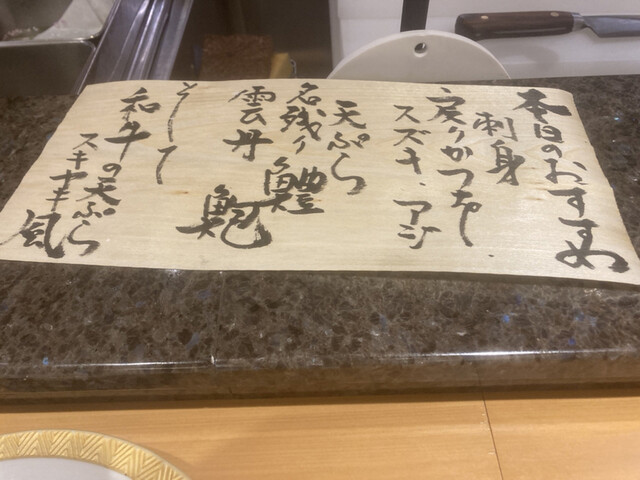 本日のおすすめ
刺身
戻りかつお
スズキ・アジ
天ぷら
名残り鱧
雲丹 鮑
そして
和牛の天ぷら
スキヤキ風